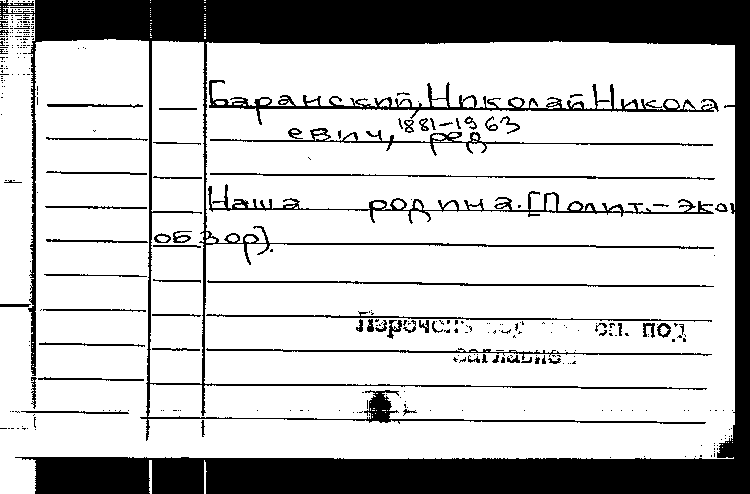 Баранский, Николай Никола-
евич, 1881-1963 ред
Наша родина. [Полит.-экон
обзор].
Перечень оп. под
заглавием